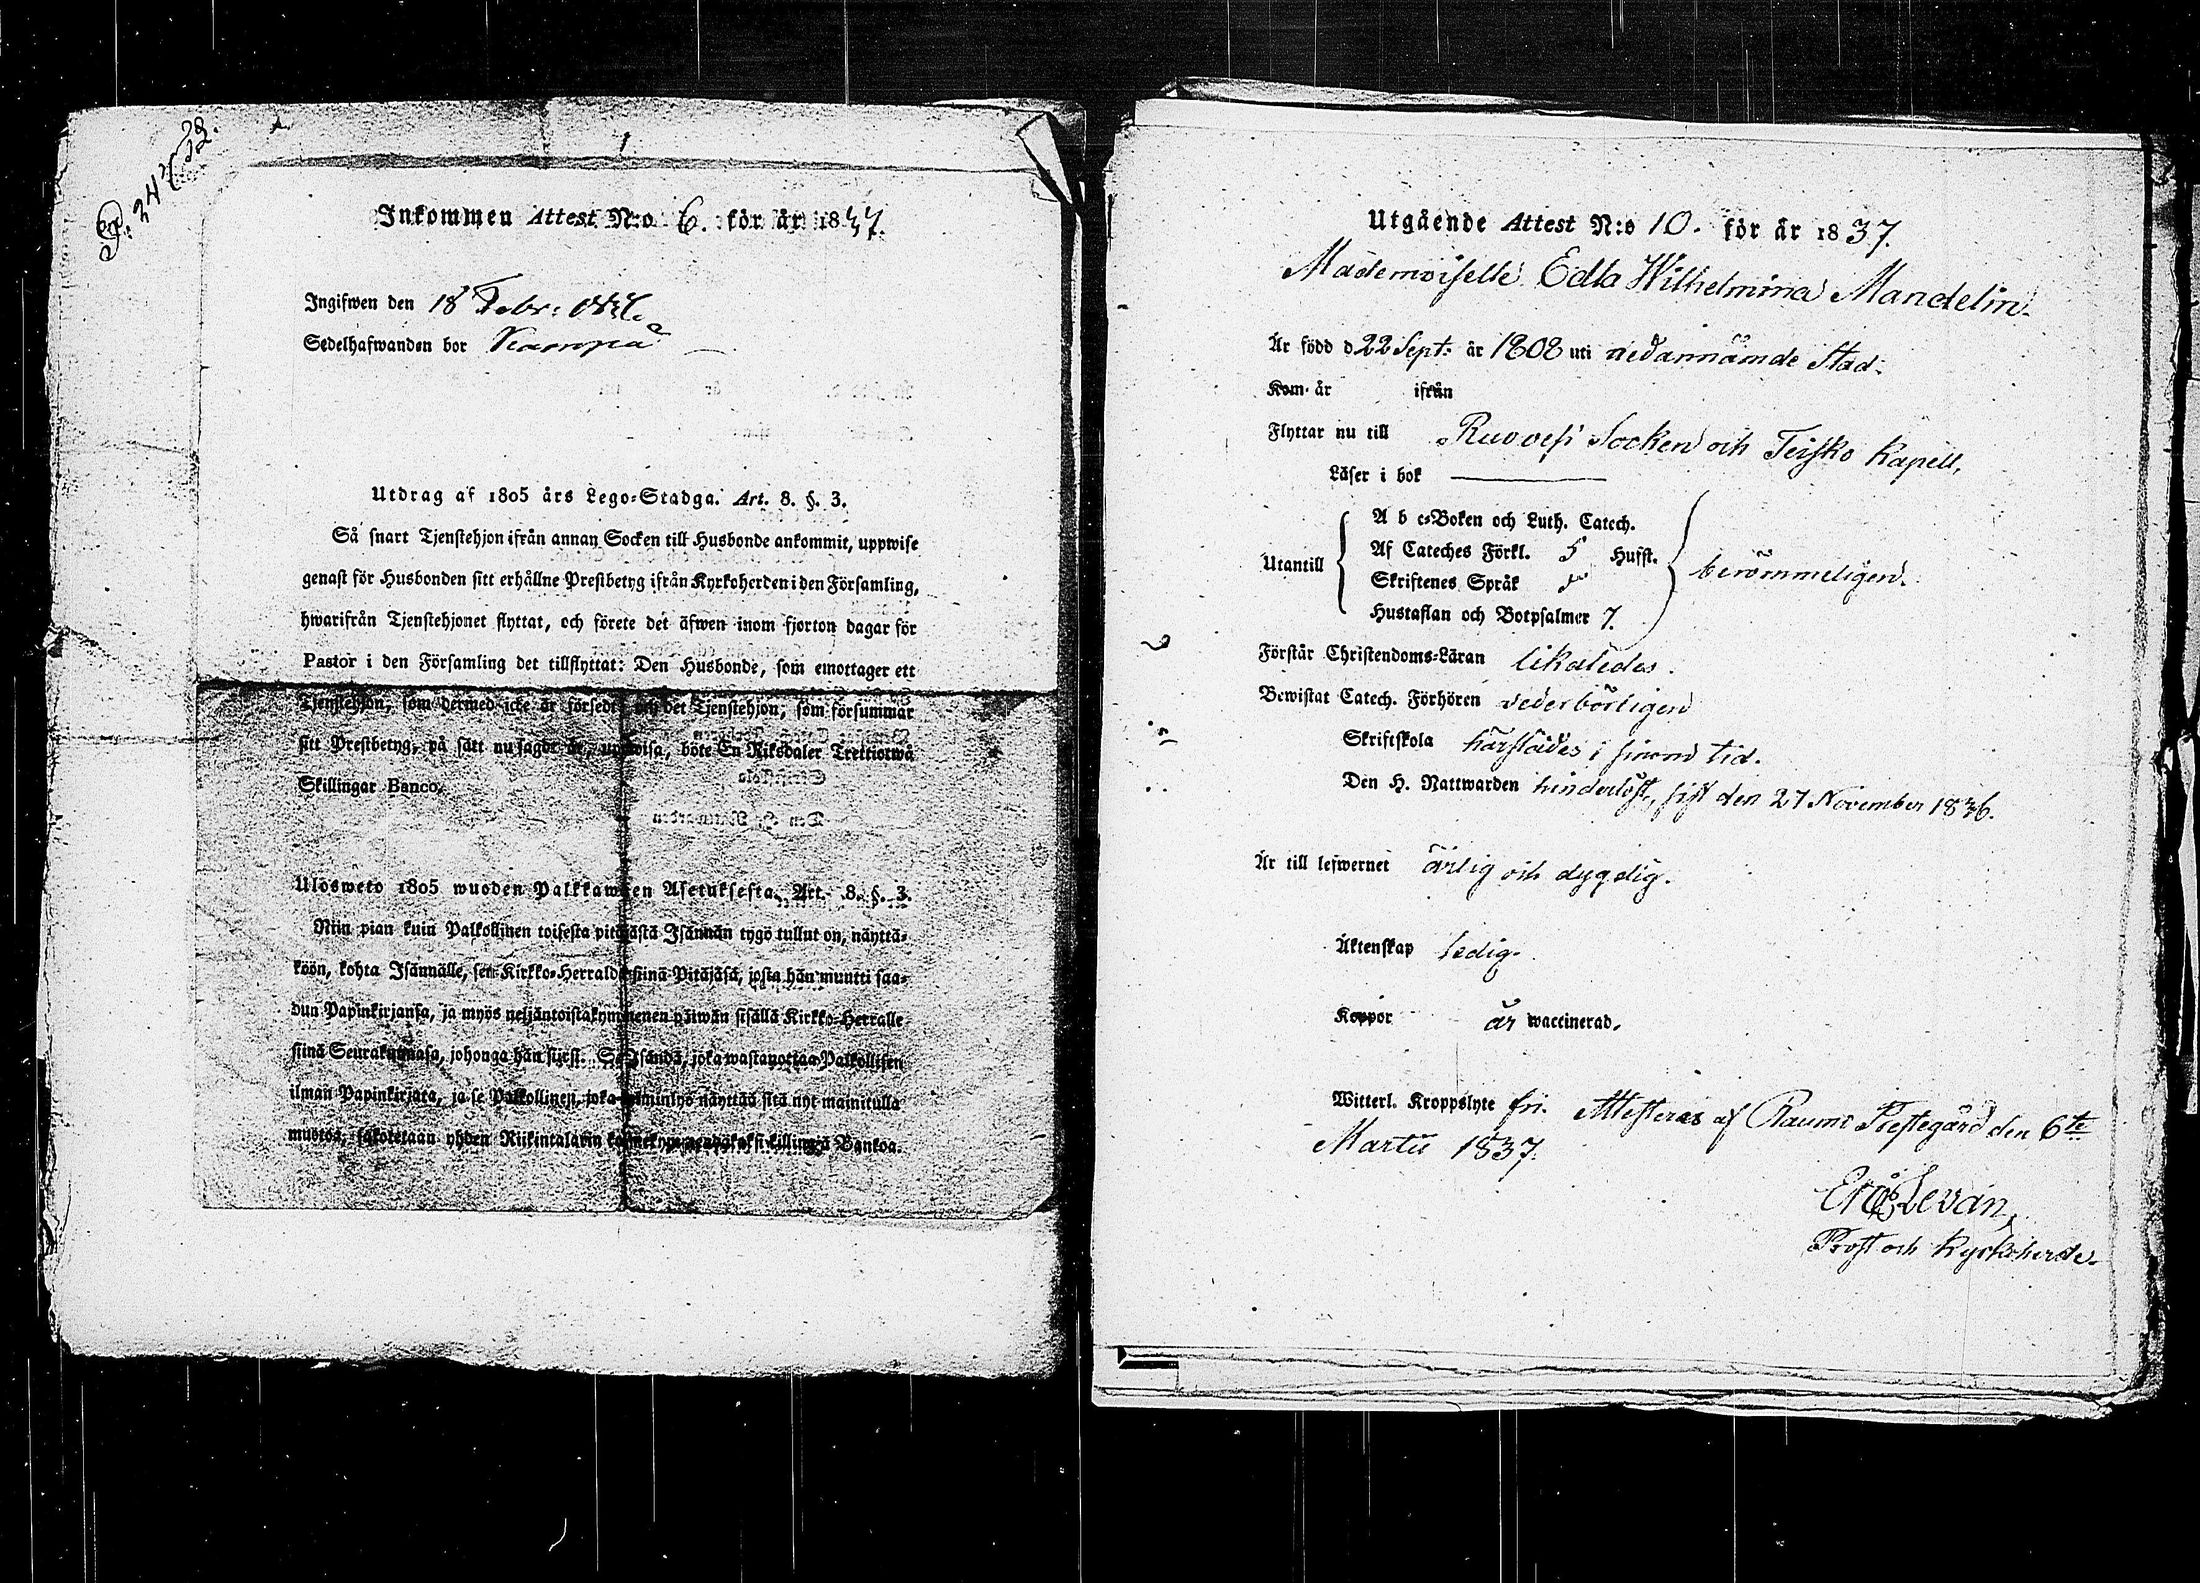 Inkommen Attest N:o 6. för år 1837.
Ingifwen den 18 Febr:
Sedelhafwanden bor
Utdrag af 1805 års Lego-Stadga. Art. 8. §. 3.
Så snart Tjenstehjon ifrån annan Socken till Husbonde ankommit, uppwise
genast för Husbonden sitt erhållne Prestbetyg ifrån Kyrkoherden i den Församling,
hwarifrån Tjenstehjonet flyttat, och förete det äfwen inom fjorton dagar för
Pastor i den Församling det tillflyttat: Den Husbonde, som emottager ett
Tjenstehjon, som dermed icke är försedt och det Tjenstehjon, som försummar
sitt Prestbetyg, på sätt nu sagdt är, uppwisa, böte En Riksdaler Trettiotwå
Skillingar Banco.
Ulosweto 1805 wuoden Palkkawäen Asetuksesta. Art. 8. §. 3.
Niin pian kuin Palkollinen toisesta pitäjästä Isännän tygö tullut on, näyttä-
köön, kohta Isännälle, sen Kirkko-Herralda siinä Pitäjäsä, josta hän muutti saa-
dun Papinkirjansa, ja myös neljäntoistakymmenen päiwän sisällä Kirkko-Herralle
siinä Seurakunnasa, johonga hän siirsi. Se Isändä, joka wastanottaa Palkollisen
ilman Papinkirjata, ja se Palkollinen, joka laiminlyö näyttää sitä nyt mainitulla
muotoa, sakotetaan yhden Riikintalarin kolmekymmendäkaksi killingiä Bankoa.
Utgående Attest N:o 10. för år 1837.
Mademoiselle Edla Wilhelmina Mandelin.
Är född d 22 Sept: år 1808 uti nedannämde Stad.
Kom år ifrån
Flyttar nu till Ruovesi Socken och Teisko Kapell,
Läser i bok
A b c-Boken och Luth. Catech.
Af Cateches Förkl. 5 Hufst.
Utantill berömmeligen.
Skriftenes Språk
Hustaflan och Botpsalmer 7.
Förstår Christendoms-Läran likaledes.
Bewistat Catech. Förhören vederbörligen
Skriftskola härstädes i sinom tid.
Den H. Nattwarden hinderlöst, sist den 27 November 1836.
Är till lefwernet ärlig och dygdig.
Äktenskap ledig.
Koppor är waccinerad.
Witterl. Kroppslyte fri. Attesteras af Raumo Prestegård den 6te
Martii 1837.
Levan,
Prost och Kyrkoherde.